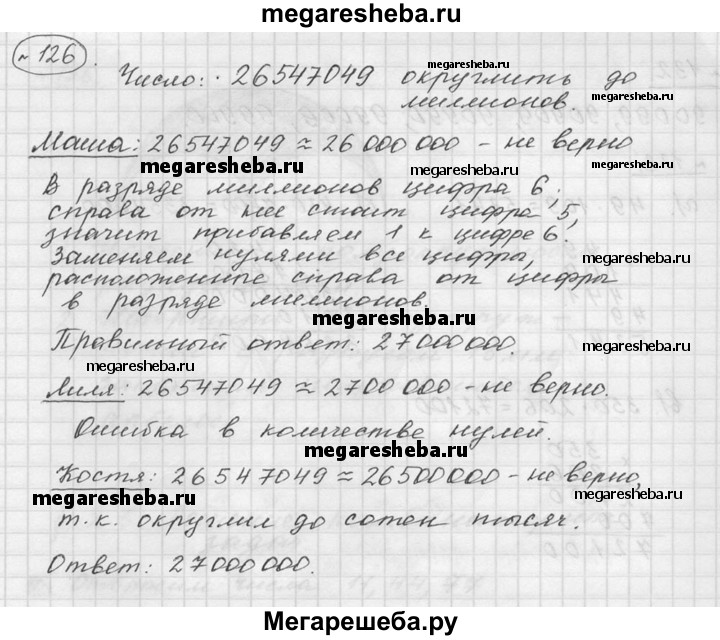 megaresheba.ru
№ 126.
Число: 26547049 округлить до
миллионов
Маша: 26547049 ≈ 26 000 000 - не верно
megaresheba.ru
megaresheba.ru
В разряде миллионов цифра 6;
справа от нее стоит цифра 5,
значит прибавляем 1 к цифре 6.
Заменяем нулями все цифры,
расположенные справа от цифры
в разряде миллионов.
megaresheba.ru
Правильный ответ: 27000000.
megaresheba.ru
megaresheba.ru
Лиля: 26547049 ≈ 2700 000 - не верно.
megaresheba.ru
Ошибка в количестве нулей.
Костя: 26547049 ≈ 26500000 - не верно,
megaresheba.ru
megaresheba.ru
т.к. округлил до сотен тысяч.
Ответ: 27000000.
Мегарешеба.ру